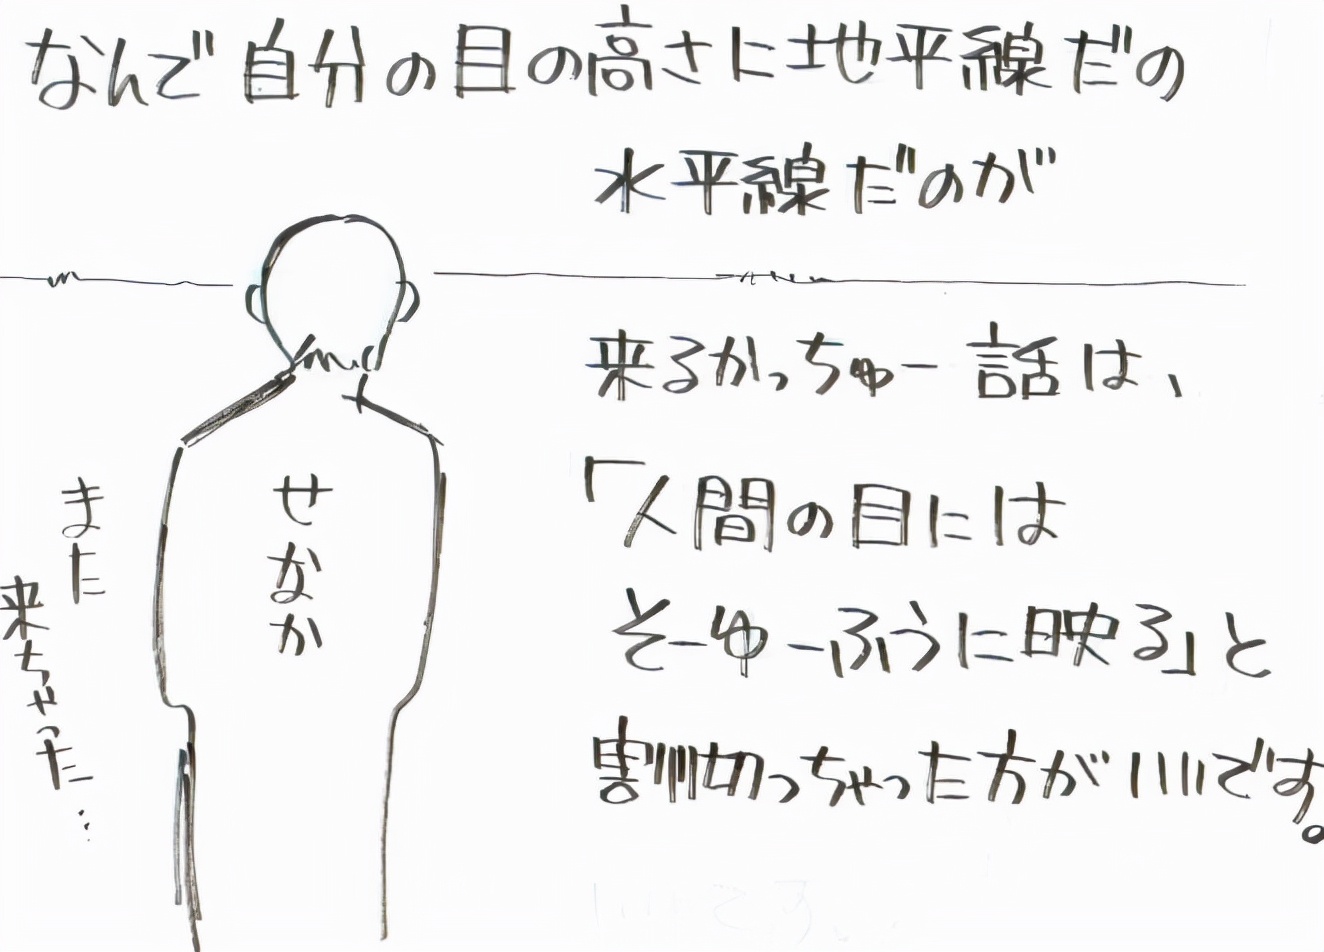 なんで自分の目の高さに地平線だの
水平線だのが
来るかっちゅー話は、
「人間の目には
そーゆーふうに映る」と
割り切っちゃった方がいいです。
せなか
また
来ちゃった…